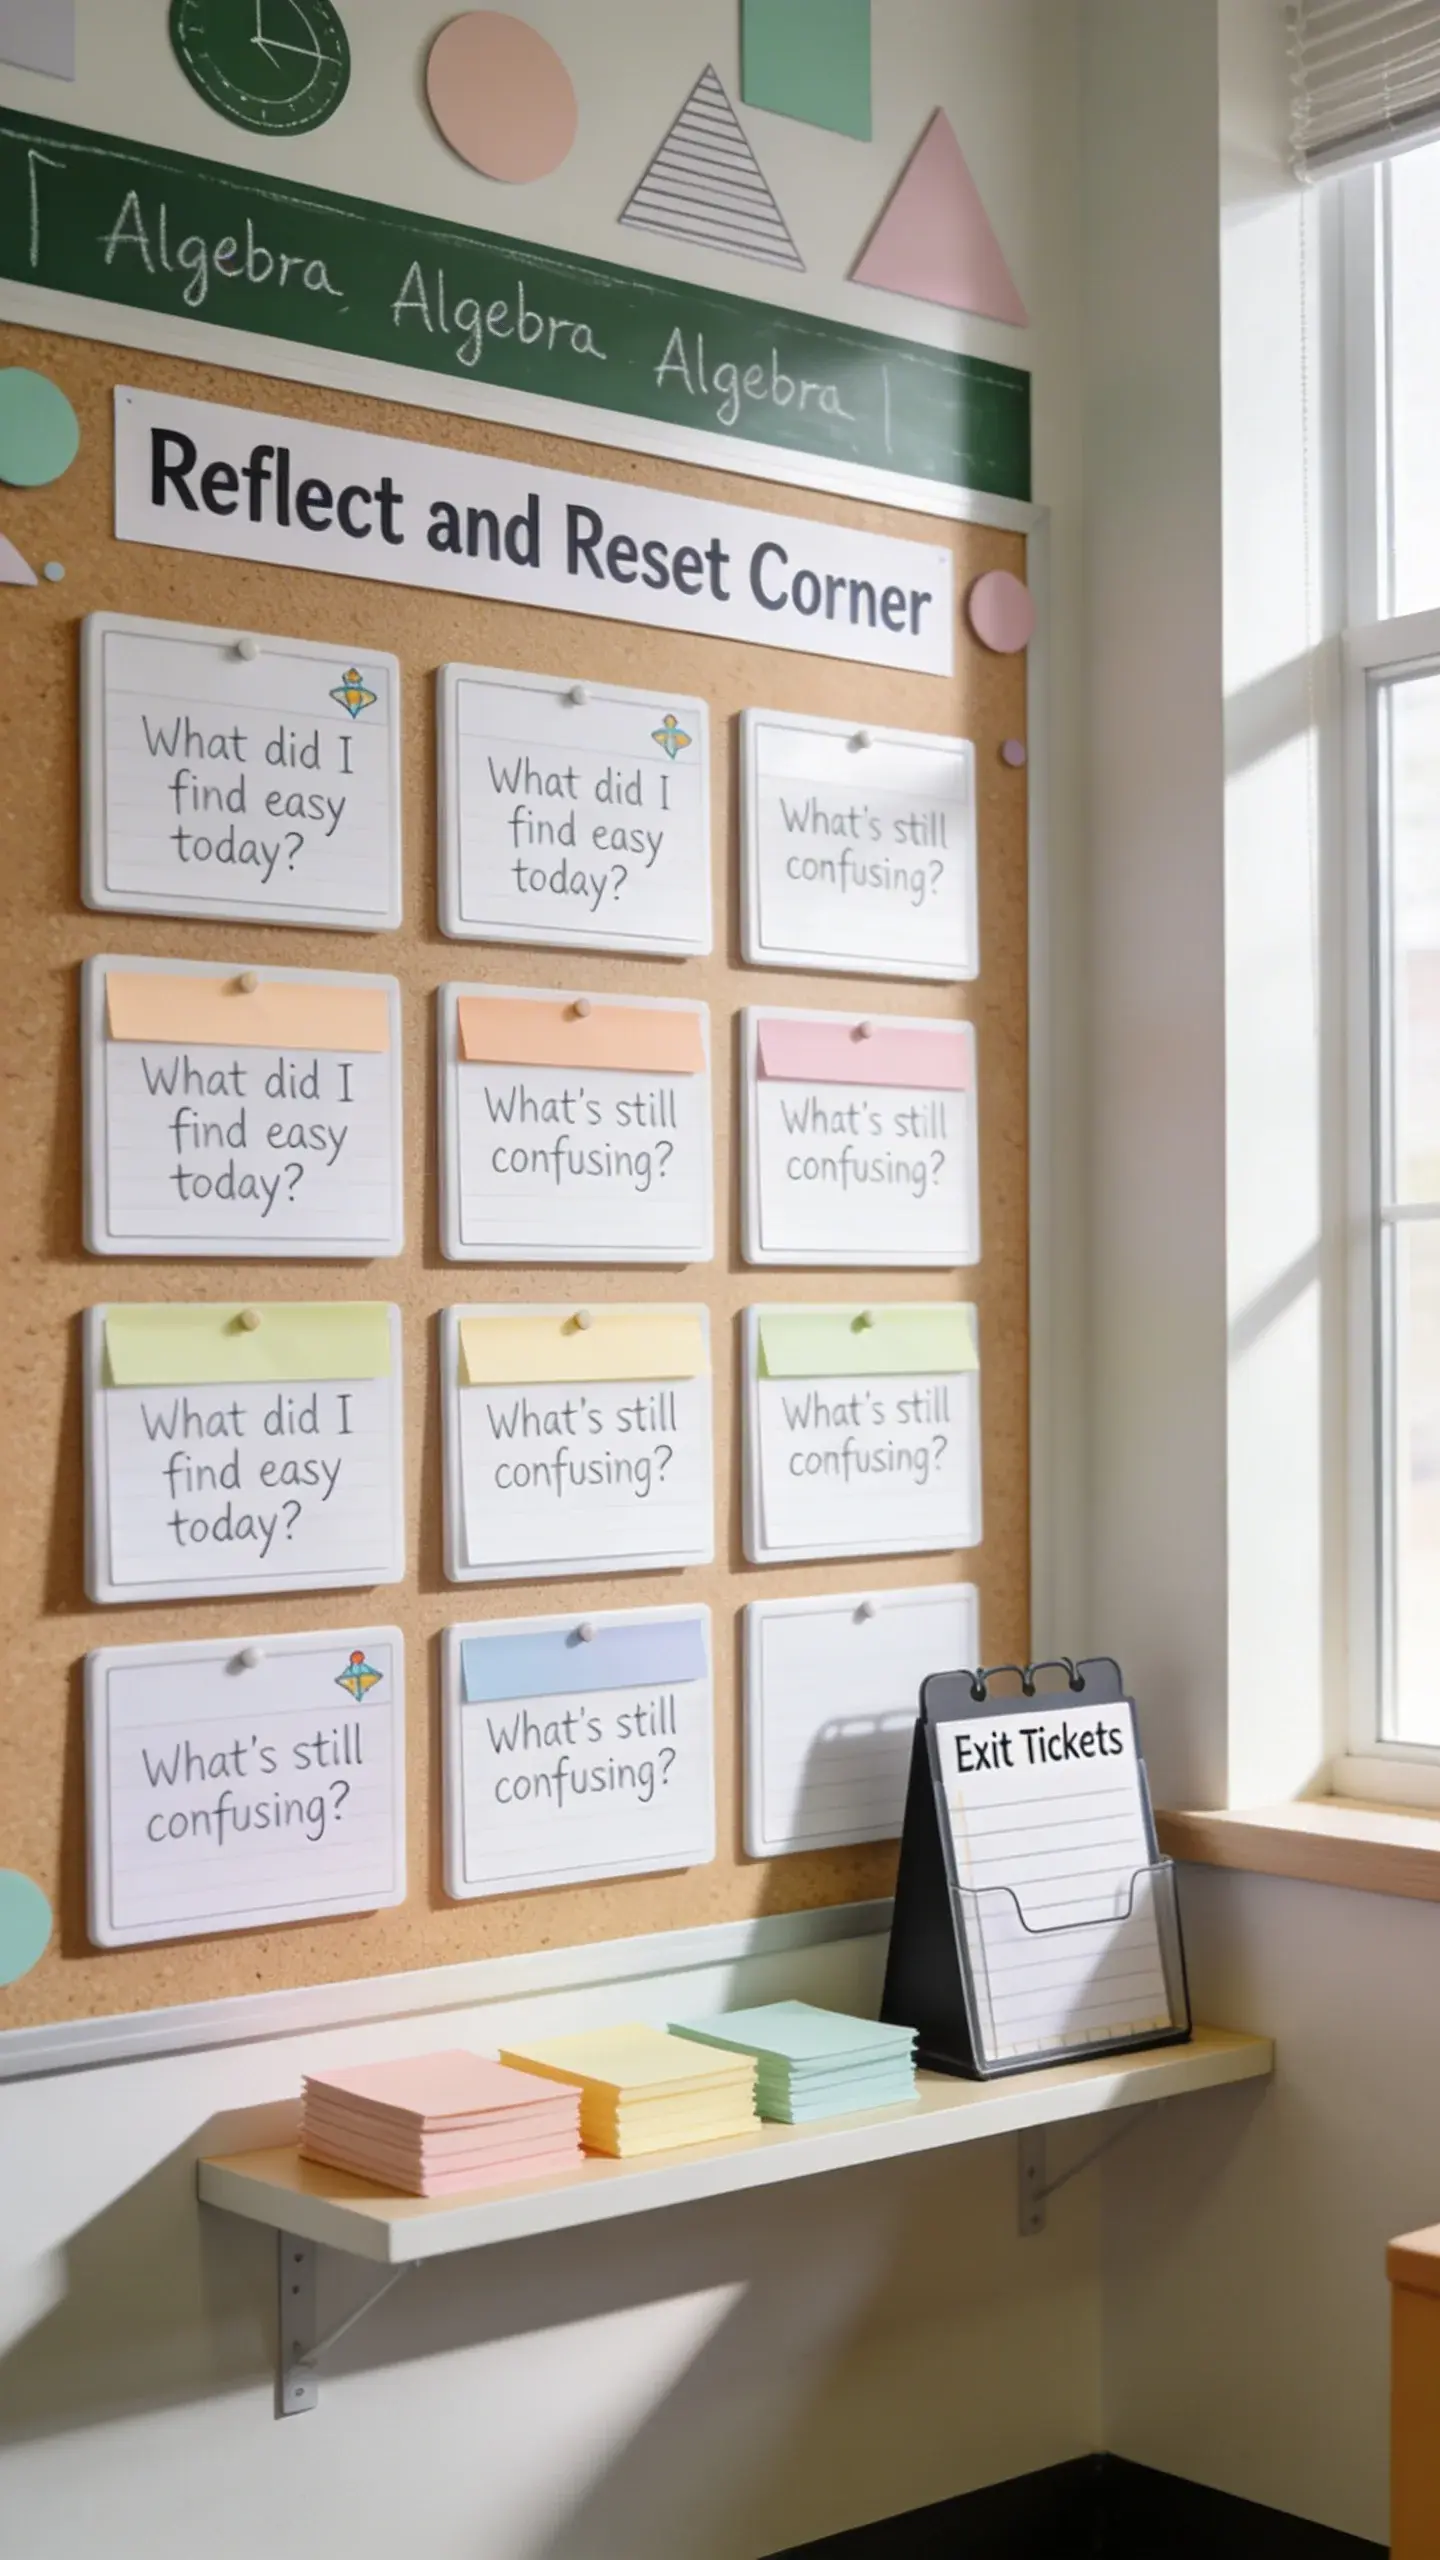 Algebra Algebra Algebra
Reflect and Reset Corner
What did I
find easy
today?
What did I
find easy
today?
What's still
confusing?
What did I
find easy
today?
What's still
confusing?
What's still
confusing?
What did I
find easy
today?
What's still
confusing?
What's still
confusing?
What's still
confusing?
What's still
confusing?
Exit Tickets